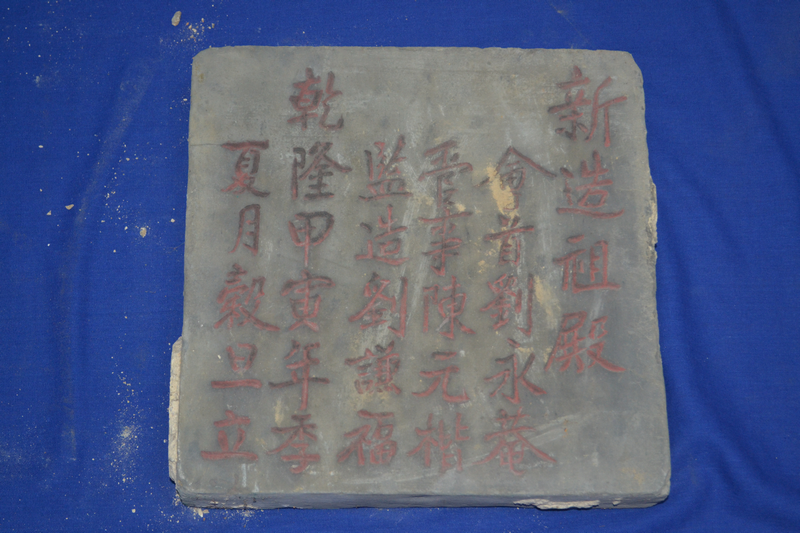 新造祖殿
首劉永菴
陳元楷
監造劉謙福
乾隆甲寅年季
夏月穀旦立